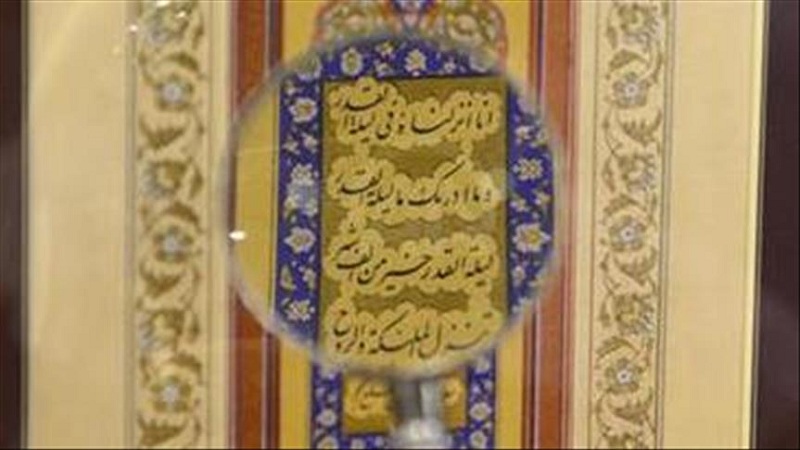 انا انزلناه فی لیلة القدر
و ما ادرىک ما لیلة القدر
لیلة القدر خیر من الف شهر
تنزل الملئکة والروح